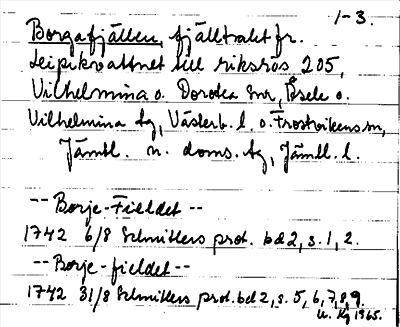 1-3.
Borgafjällen, fjälltrakt fr.
Leipikvattnet till riksrös 205,
Vilhelmina o. Dorotea snr, Åsele o.
Vilhelmina tg, Västerb. l. o. Frostvikens sn,
Jämtl. n. doms. tg, Jämtl. l.
-- Borje-Fieldet --
1742 6/8 Schnitlers prot. bd 2, s. 1, 2.
-- Borje-fieldet --
1742 31/8 Schnitlers prot. bd 2, s. 5, 6, 7, 8, 9.
1965.